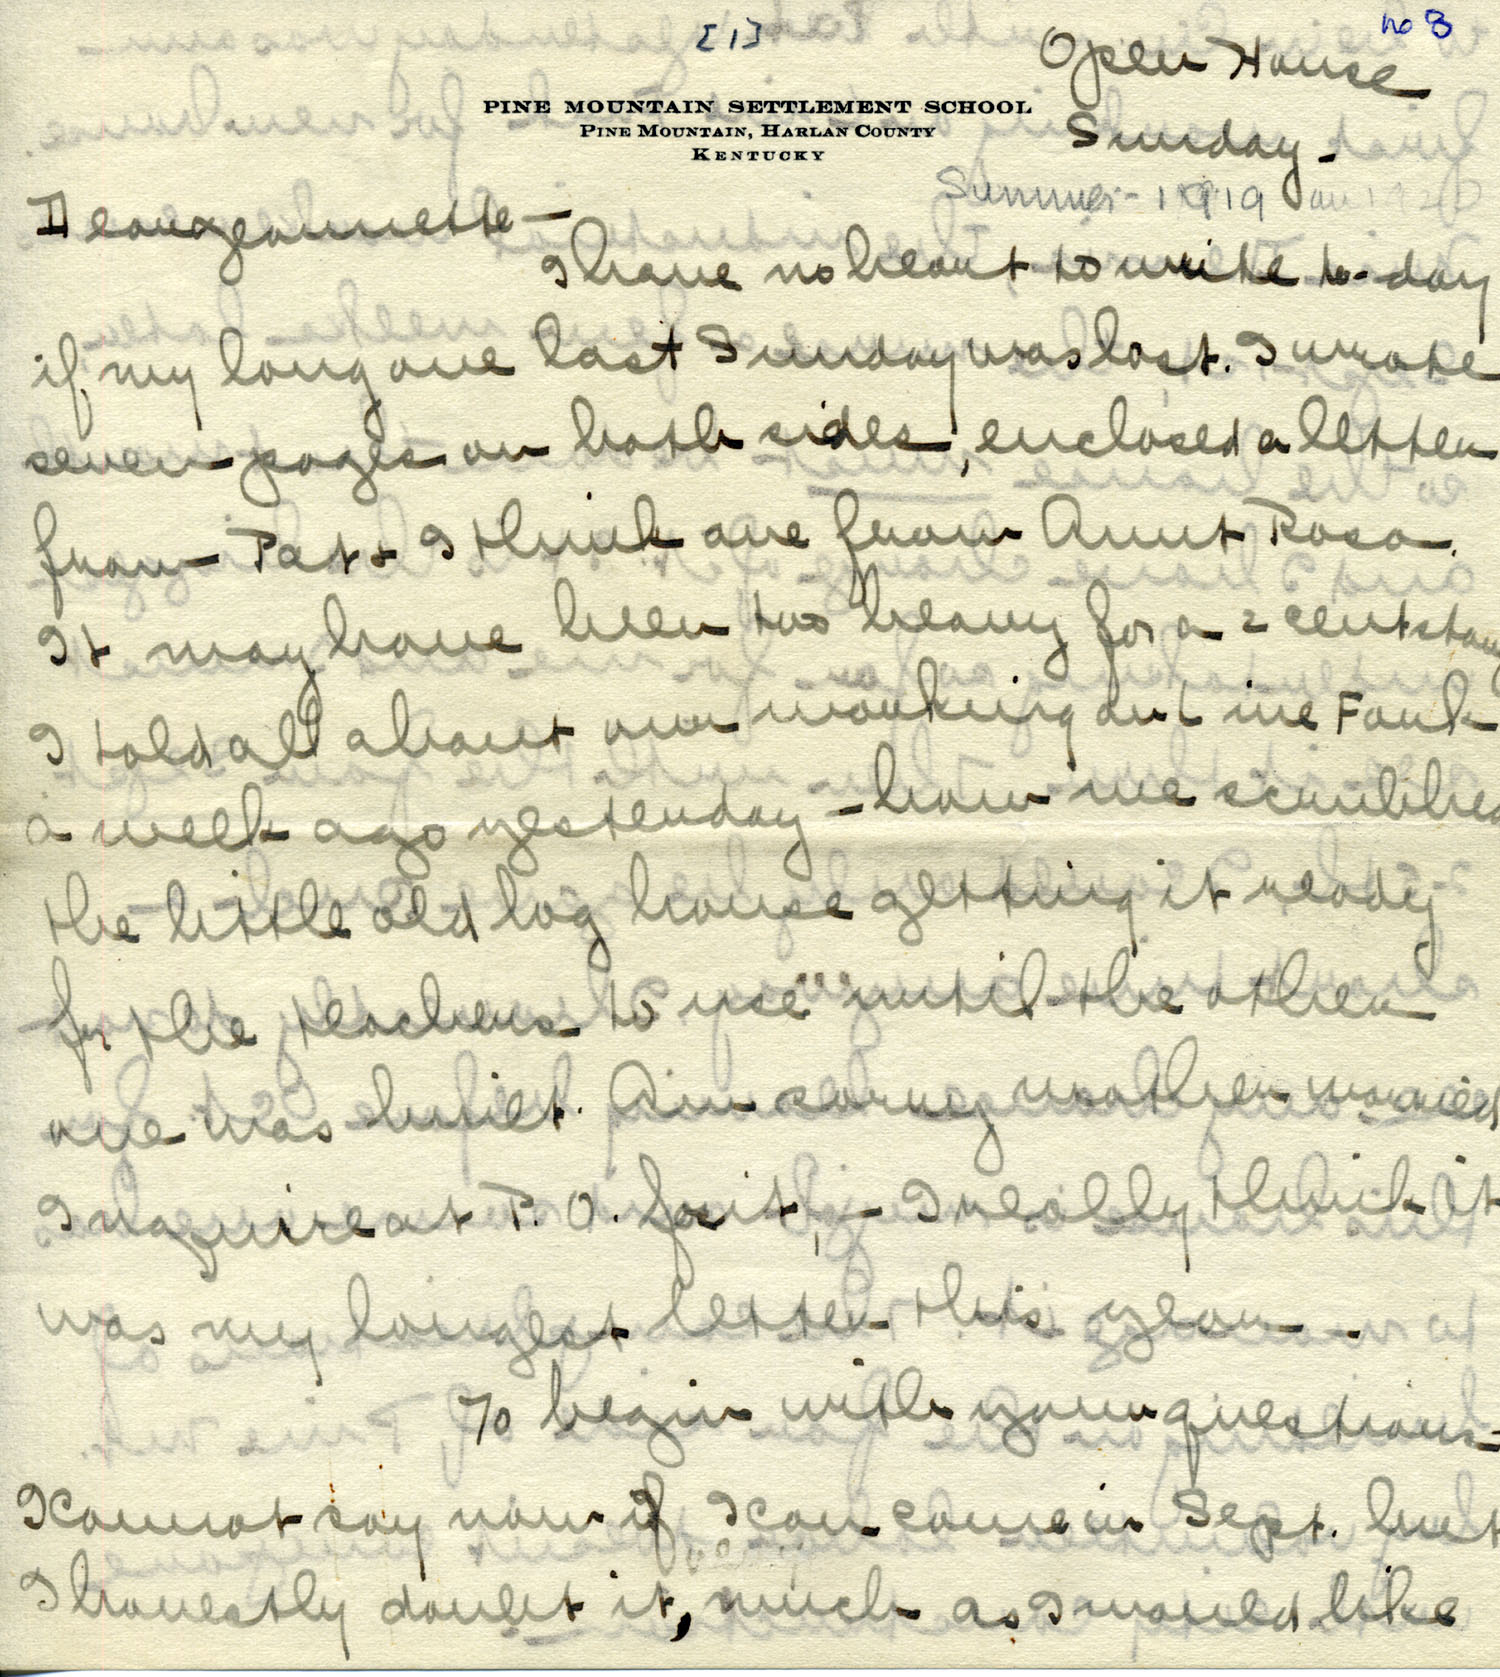 [1]
no 3
Open House
PINE MOUNTAIN SETTLEMENT SCHOOL
PINE MOUNTAIN, HARLAN COUNTY
KENTUCKY
Sunday -
Summer - 1919 or 1920
Dear Jeannette -
I have no heart to write to-day
if my long one last Sunday was lost. I wrote
seven pages on both sides, enclosed a letter
from Pat & I think one from Aunt Rosa.
It may have been too heavy for a 2 cent stamp
I told all about our working out in Fork
a week ago yesterday - how we scrubbed
the little old log house getting it ready
for the teachers to use until the other
one was built. Am sorry mother worried
Inquire at P.O. for it, - I really think it
was my longest letter this year - .
To begin with your questions -
I cannot say now if I can come in Sept. but
I honestly doubt it, much as I would like